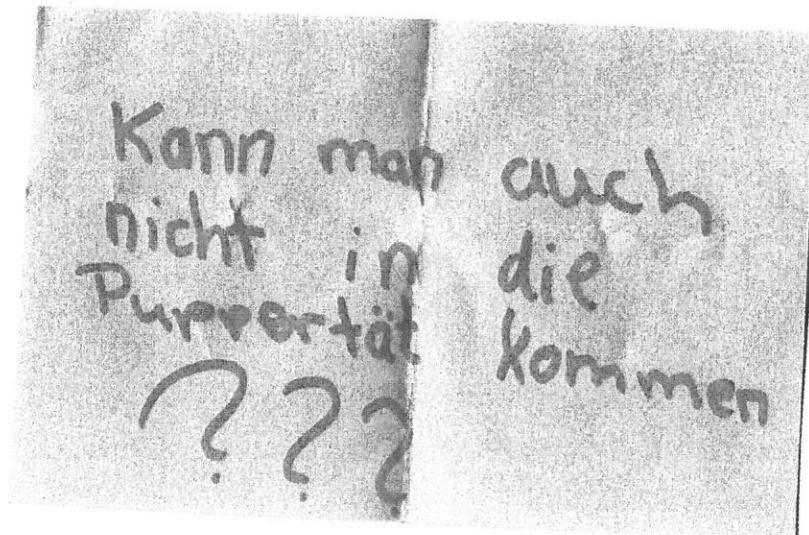 Kann man auch
nicht in die
Puppertät kommen
???